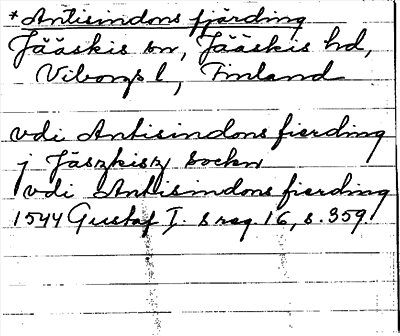 *Antisindons fjärding
Jääskis sn, Jääskis hd,
Viborgs l, Finland
vdi Antisindons fierding
j Jäszkisz sockn
vdi Antisindons fierding
1544 Gustaf I. s reg 16, s. 359.